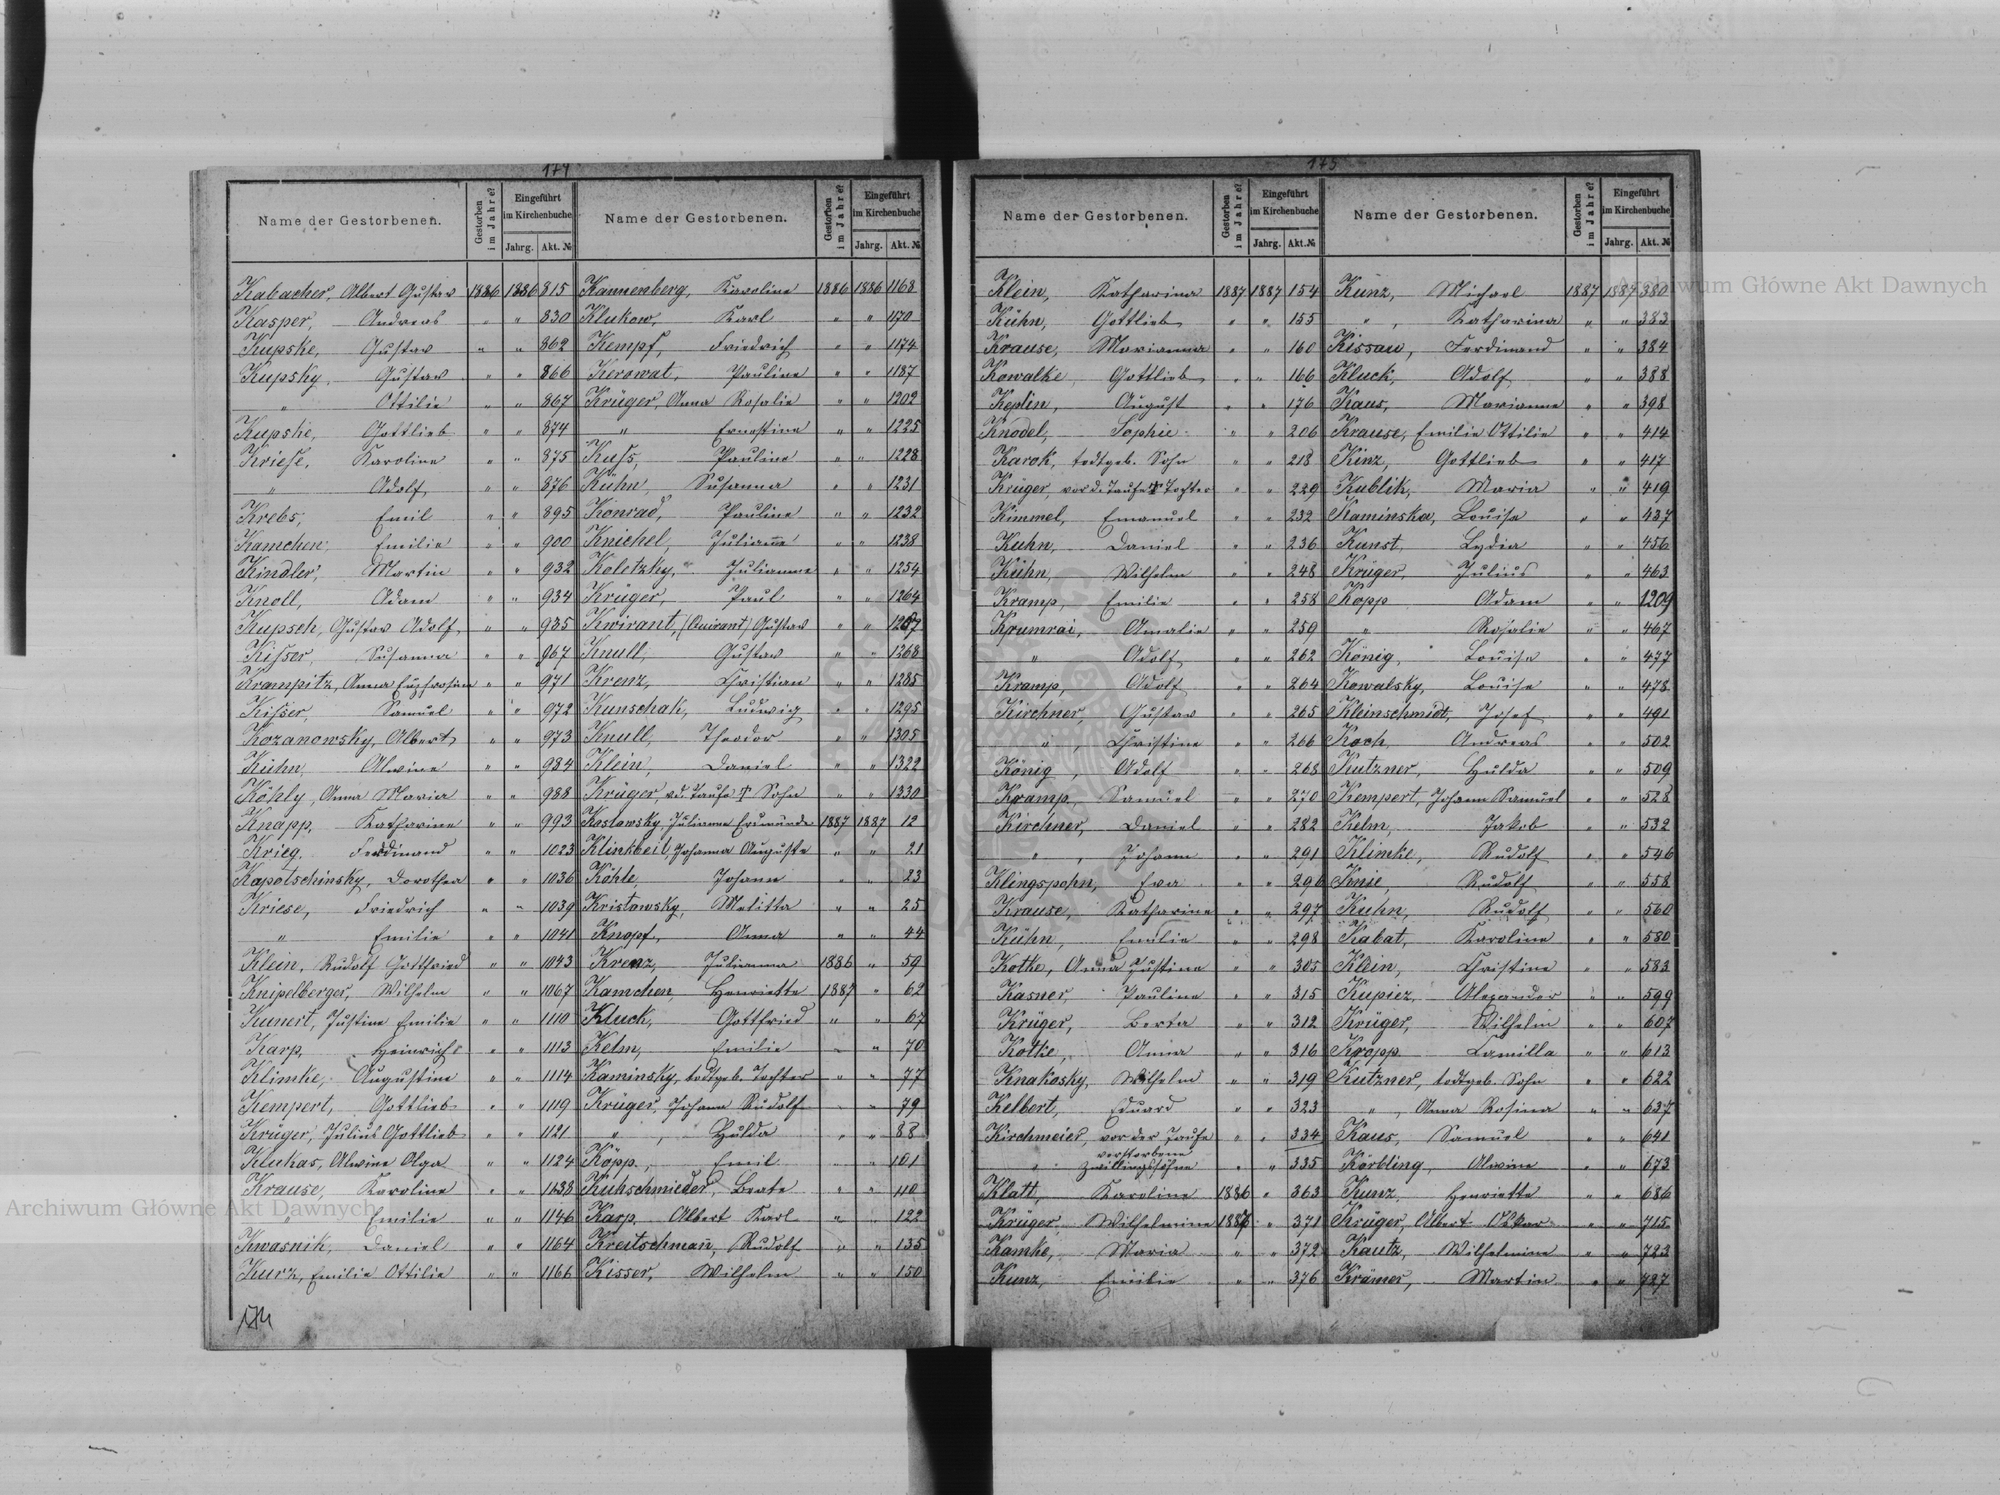 174
Name der Gestorbenen. Gestorben im Jahre? Eingeführt im Kirchenbuche Jahrg. Akt. № Name der Gestorbenen. Gestorben im Jahre? Eingeführt im Kirchenbuche Jahrg. Akt. №
Kabacher, Albert Gustav 1886 1886 815 Kannenberg, Karoline 1886 1886 1168
Kasper, Andreas " " 830 Klukow, Karl " " 1170
Kupske, Gustav " " 862 Kempf, Friedrich " " 1174
Kupsky, Gustav " " 866 Kerowat, Pauline " " 1187
" Ottilie " " 867 Krüger, Anna Rosalie " " 1202
Kupske, Gottlieb " " 874 " Ernestine " " 1225
Kriese, Karoline " " 875 Kuss, Pauline " " 1228
" Adolf " " 876 Kuhn, Susanna " " 1231
Krebs, Emil " " 895 Konrad, Pauline " " 1232
Kamchen, Emilie " " 900 Knichel, Julianne " " 1238
Kindler, Martin " " 932 Koletzky, Julianne " " 1254
Knoll, Adam " " 934 Krüger, Paul " " 1264
Kupsch, Gustav Adolf " " 935 Kwirant, (Quirant) Gustav " "
Kisser, Susanna " " 967 Knull, Gustav " " 1268
Krampitz, Anna Eufrosine " " 971 Krenz, Christian " " 1285
Kisser, Samuel " " 972 Kunschak, Ludwig " " 1295
Kozanowsky, Albert " " 973 Knull, Theodor " " 1305
Kühn, Alwine " " 984 Klein, Daniel " " 1322
Köhly, Anna Maria " " 988 Krüger, v.d. Taufe † Sohn " " 1330
Knapp, Katharine " " 993 Koslowsky, Julianne 1887 1887 12
Krieg, Ferdinand " " 1023 Klinkbeil, Johanna Auguste " " 21
Kapotschinsky, Dorothea " " 1036 Köhle, Johann " " 23
Kriese, Friedrich " " 1039 Kristowsky, Melitta " " 25
" Emilie " " 1041 Knopf, Anna " " 44
Klein, Rudolf Gottfried " " 1043 Krenz, Julianna 1886 " 59
Knipelberger, Wilhelm " " 1067 Kamchen, Henriette 1887 " 62
Kunert, Justine Emilie " " 1110 Kluck, Gottfried " " 67
Karp, Heinrich " " 1113 Kelm, Emilie " " 70
Klimke, Augustine " " 1114 Kaminsky, todtgeb. Tochter " " 77
Kempert, Gottlieb " " 1119 Krüger, Johann Rudolf " " 79
Krüger, Julius Gottlieb " " 1121 " , Hulda " " 88
Klukas, Alwine Olga " " 1124 Köpp, Emil " " 101
Krause, Karoline " " 1138 Kuhschmieder, Beate " " 110
" Emilie " " 1146 Karp, Albert Karl " " 122
Kwasnik, Daniel " " 1164 Kreitschmañ, Rudolf " " 135
Kurz, Emilie Ottilie " " 1166 Kisser, Wilhelm " " 150
174
175
Name der Gestorbenen. Gestorben im Jahre? Eingeführt im Kirchenbuche Jahrg. Akt. № Name der Gestorbenen. Gestorben im Jahre? Eingeführt im Kirchenbuche Jahrg. Akt. №
Klein, Katharina 1887 1887 154 Kunz, Michael 1887 1887 380
Kühn, Gottlieb " " 155 " , Katharina " " 383
Krause, Marianna " " 160 Kissau, Ferdinand " " 384
Kowalke, Gottlieb " " 166 Kluck, Adolf " " 388
Keplin, August " " 176 Kaus, Marianne " " 398
Knodel, Sophie " " 206 Krause, Emilie Ottilie " " 414
Karok, todtgeb. Sohn " " 218 Kinz, Gottlieb " " 417
Krüger, vor d. Taufe † Tochter " " 229 Kublik, Maria " " 419
Kimmel, Emanuel " " 232 Kaminska, Louise " " 437
Kuhn, Daniel " " 236 Kunst, Lydia " " 456
Kühn, Wilhelm " " 248 Krüger, Julius " " 463
Kramp, Emilie " " 258 Kopp Adam " " 1209
Krumrai, Amalie " " 259 " Rosalie " " 467
" Adolf " " 262 König, Louise " " 477
Kramp, Adolf " " 264 Kowalsky, Louise " " 478
Kirchner, Gustav " " 265 Kleinschmidt, Josef " " 491
" , Christine " " 266 Koch, Andreas " " 502
König, Adolf " " 268 Kutzner, Hulda " " 509
Kramp, Samuel " " 270 Kempert, Johann Samuel " " 528
Kirchner, Daniel " " 282 Kelm, Jakob " " 532
" , Johann " " 291 Klimke, Rudolf " " 546
Klingspohn, Eva " " 296 Knie, Rudolf " " 558
Krause, Katharine " " 297 Kuhn, Rudolf " " 560
Kühn, Emilie " " 298 Kabat, Karoline " " 580
Kothe, Anna Justine " " 305 Klein, Christine " " 583
Kasner, Pauline " " 315 Kupiez, Alexander " " 599
Krüger, Berta " " 312 Krüger, Wilhelm " " 607
Kotke, Anna " " 316 Kropp, Camilla " " 613
Knakosky, Wilhelm " " 319 Kutzner, todtgeb. Sohn " " 622
Kelbert, Eduard " " 323 " , Anna Rosina " " 637
Kirchmeier, vor der Taufe " " 334 Kaus, Samuel " " 641
" verstorbene Zwillingssöhne " " 335 Körbling, Alwine " " 673
Klatt, Karoline 1886 " 363 Kunz, Henriette " " 686
Krüger, Wilhelmine 1887 " 371 Krüger, Albert Oskar " " 715
Kamke, Maria " " 372 Kautz, Wilhelmine " " 723
Kunz, Emilie " " 376 Krämer, Martin " " 727
Archiwum Główne Akt Dawnych
Archiwum Główne Akt Dawnych